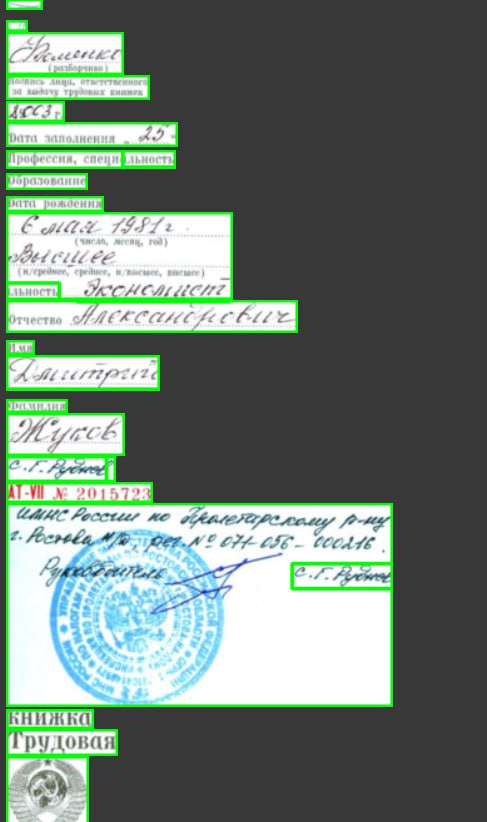 Фоменко
(разборчиво)
Подпись лица, ответственного
за выдачу трудовых книжек
2003 г.
Дата заполнения „ 25 "
Профессия, специальность
Образование
Дата рождения
6 мая 1981 г.
(число, месяц, год)
Высшее
(н/среднее, среднее, н/высшее, высшее)
льность Экономист
Отчество Александрович
Имя
Дмитрий
Фамилия
Жуков
С. Г. Руднев
АТ-VII № 2015723
ИМНС России по Пролетарскому р-ну
г. Ростова н/Д, рег. № 071-056-000216.
Руководитель С. Г. Руднев
книжка
Трудовая